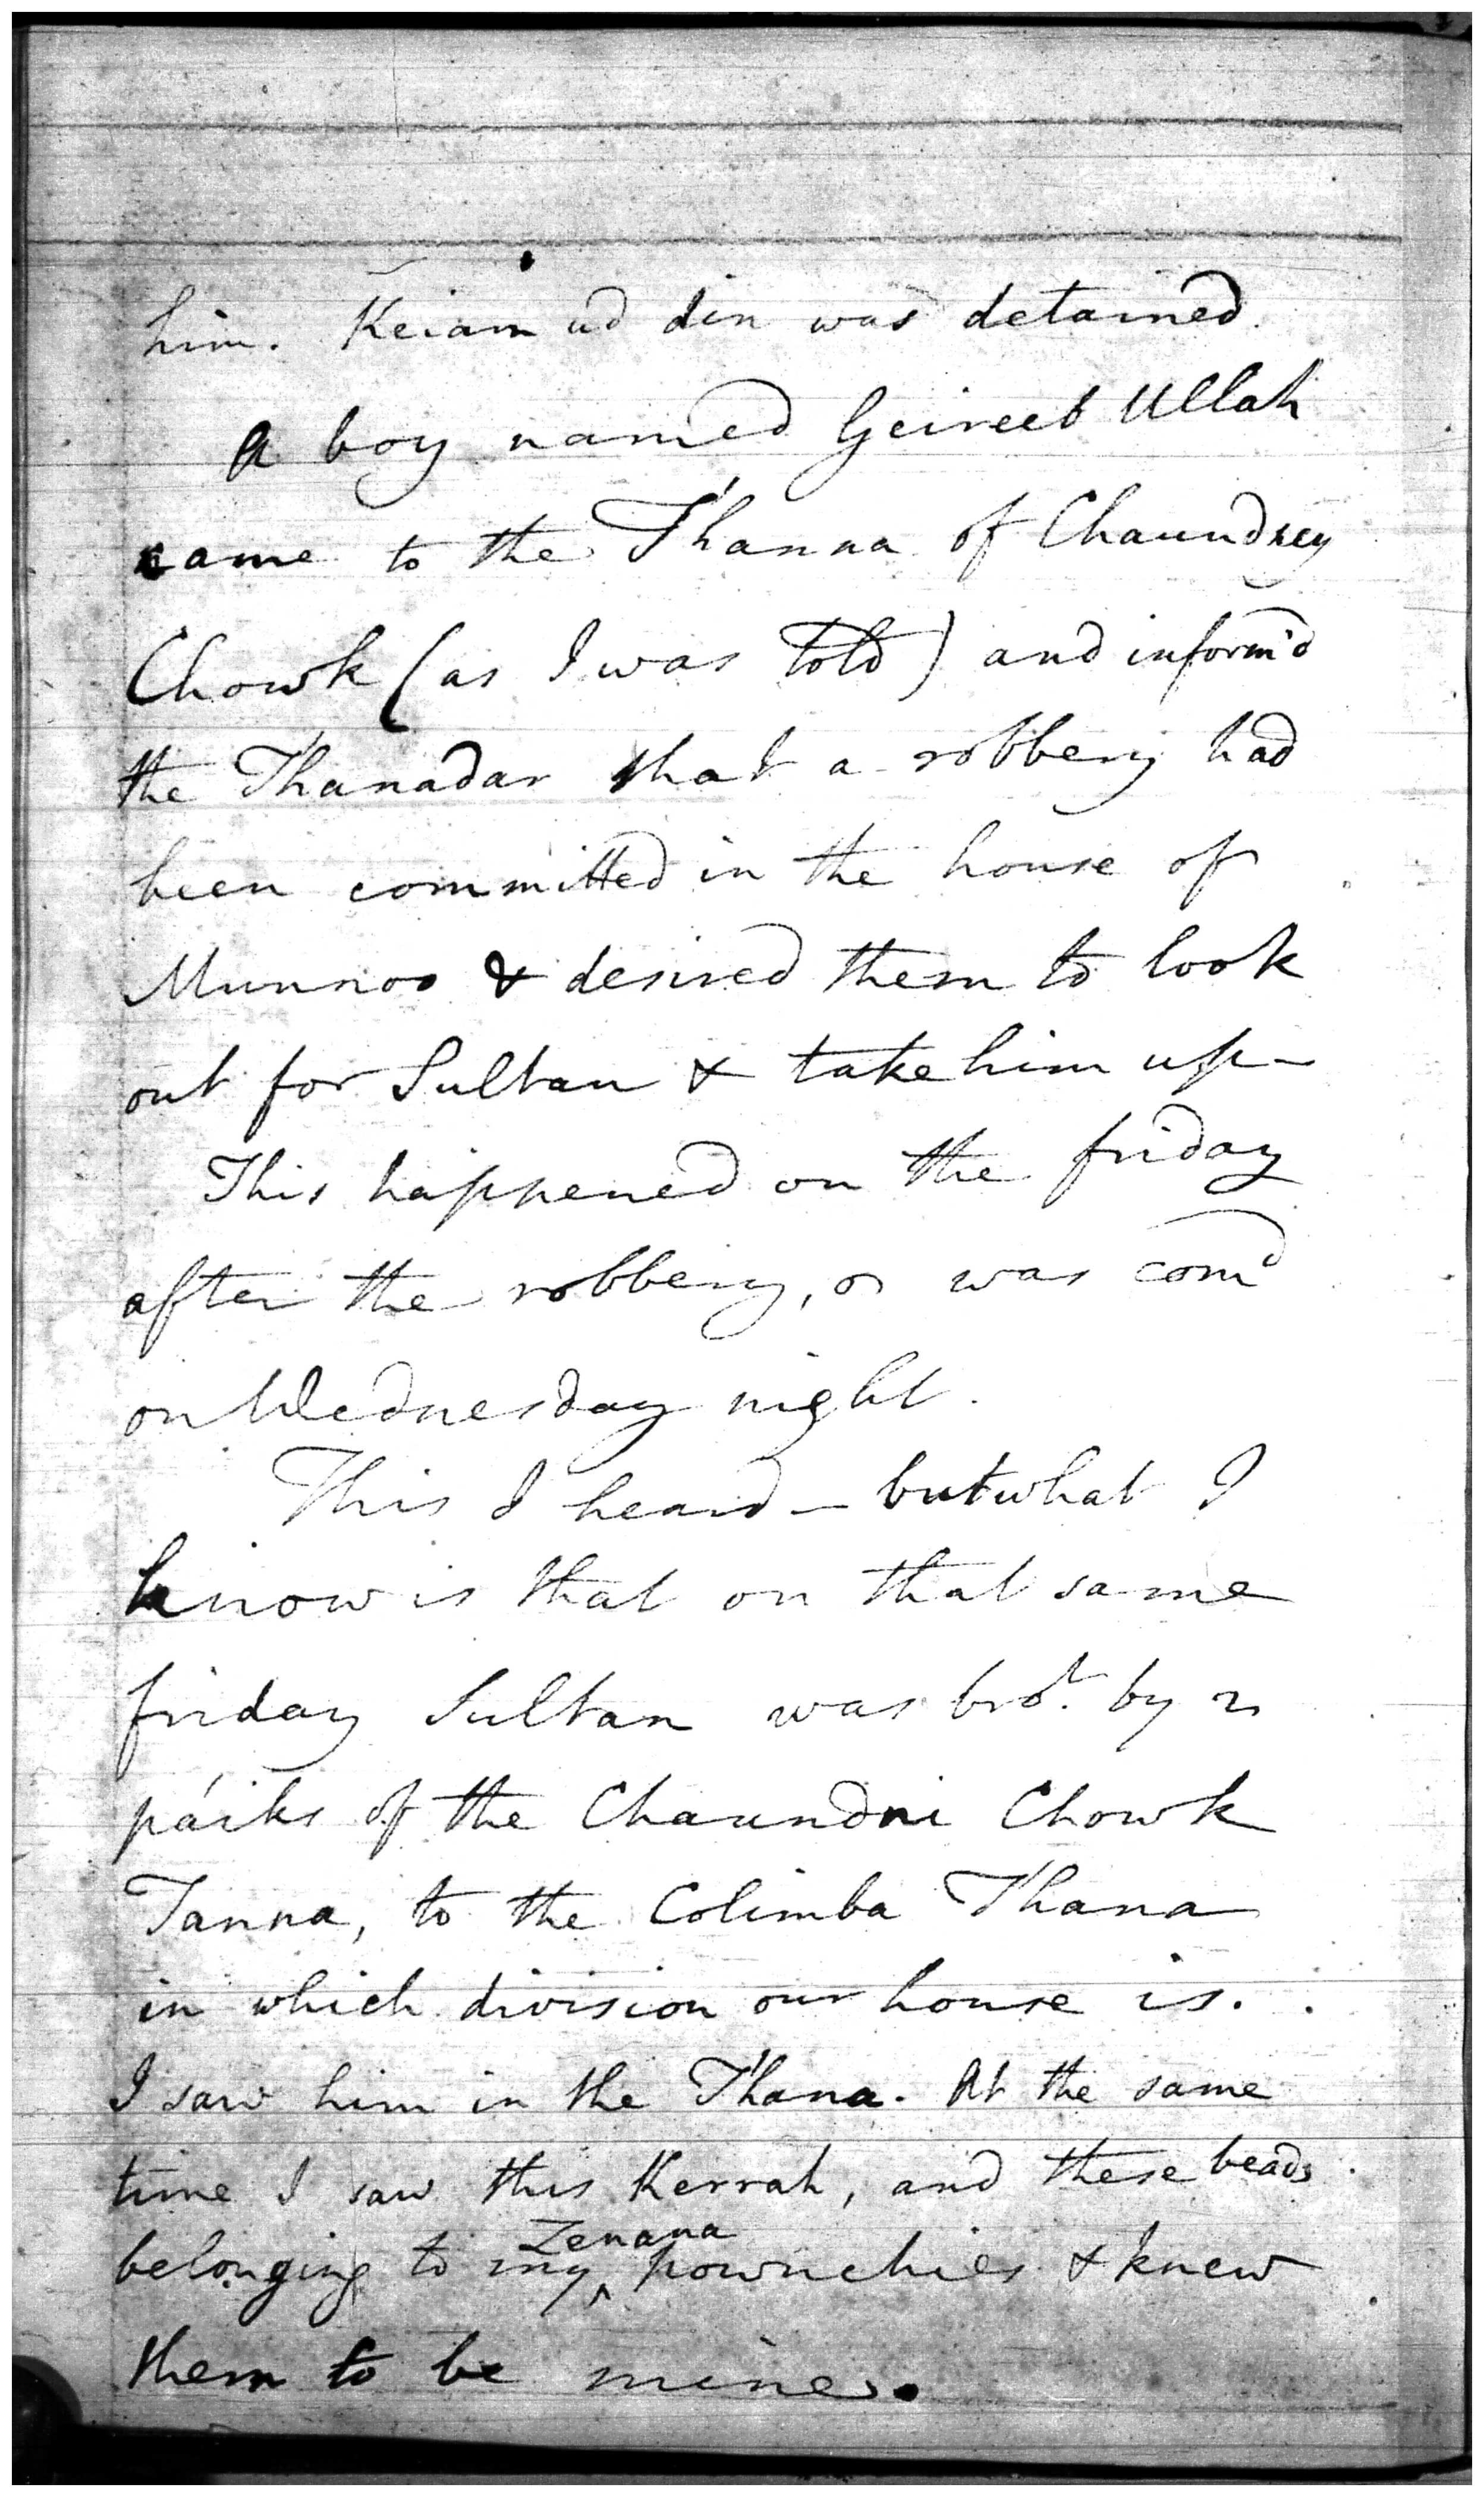 him. Keiam ud din was detained.
A boy named Geireeb Ullah
came to the Thanna of Chaundney
Chowk (as I was told) and inform'd
the Thanadar that a robbery had
been committed in the house of
Munnoo & desired them to look
out for Sultan & take him up—
This happened on the friday
after the robbery, was com^d
on Wednesday night.
This I heard — but what I
know is that on that same
friday Sultan was bro^t. by 2
páiks of the Chaundni Chowk
Tanna, to the Colimba Thana
in which division our house is.
I saw him in the Thana. At the same
time I saw this Kerrah, and these beads
belonging to my Zenana pownchies & knew
them to be mine.